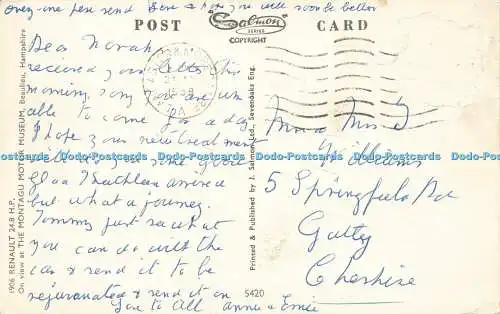 every-one here send love & hope you will soon be better
POST "Salmon" SERIES CARD
COPYRIGHT
Dear Norah
recieved your letter this
morning, sorry you are un
able to come for a day
I hope your new treatment
will do you some good
Glad Kathleen arrived
but what a journey.
Tommy just see what
you can do with the
car & send it to be
rejuvanated & send it on
Love to All Annie & Ernie
Mr & Mrs J
Williams
5 Springfield
Gatley
Cheshire
1906 RENAULT 24.8 H.P.
On view at THE MONTAGU MOTOR MUSEUM, Beaulieu, Hampshire
Printed & Published by J. Salmon Ltd., Sevenoaks Eng.
5420
Dodo-Postcards Dodo-Postcards Dodo-Postcards Dodo-Postcards Dodo-Postcards Dodo-Postcards